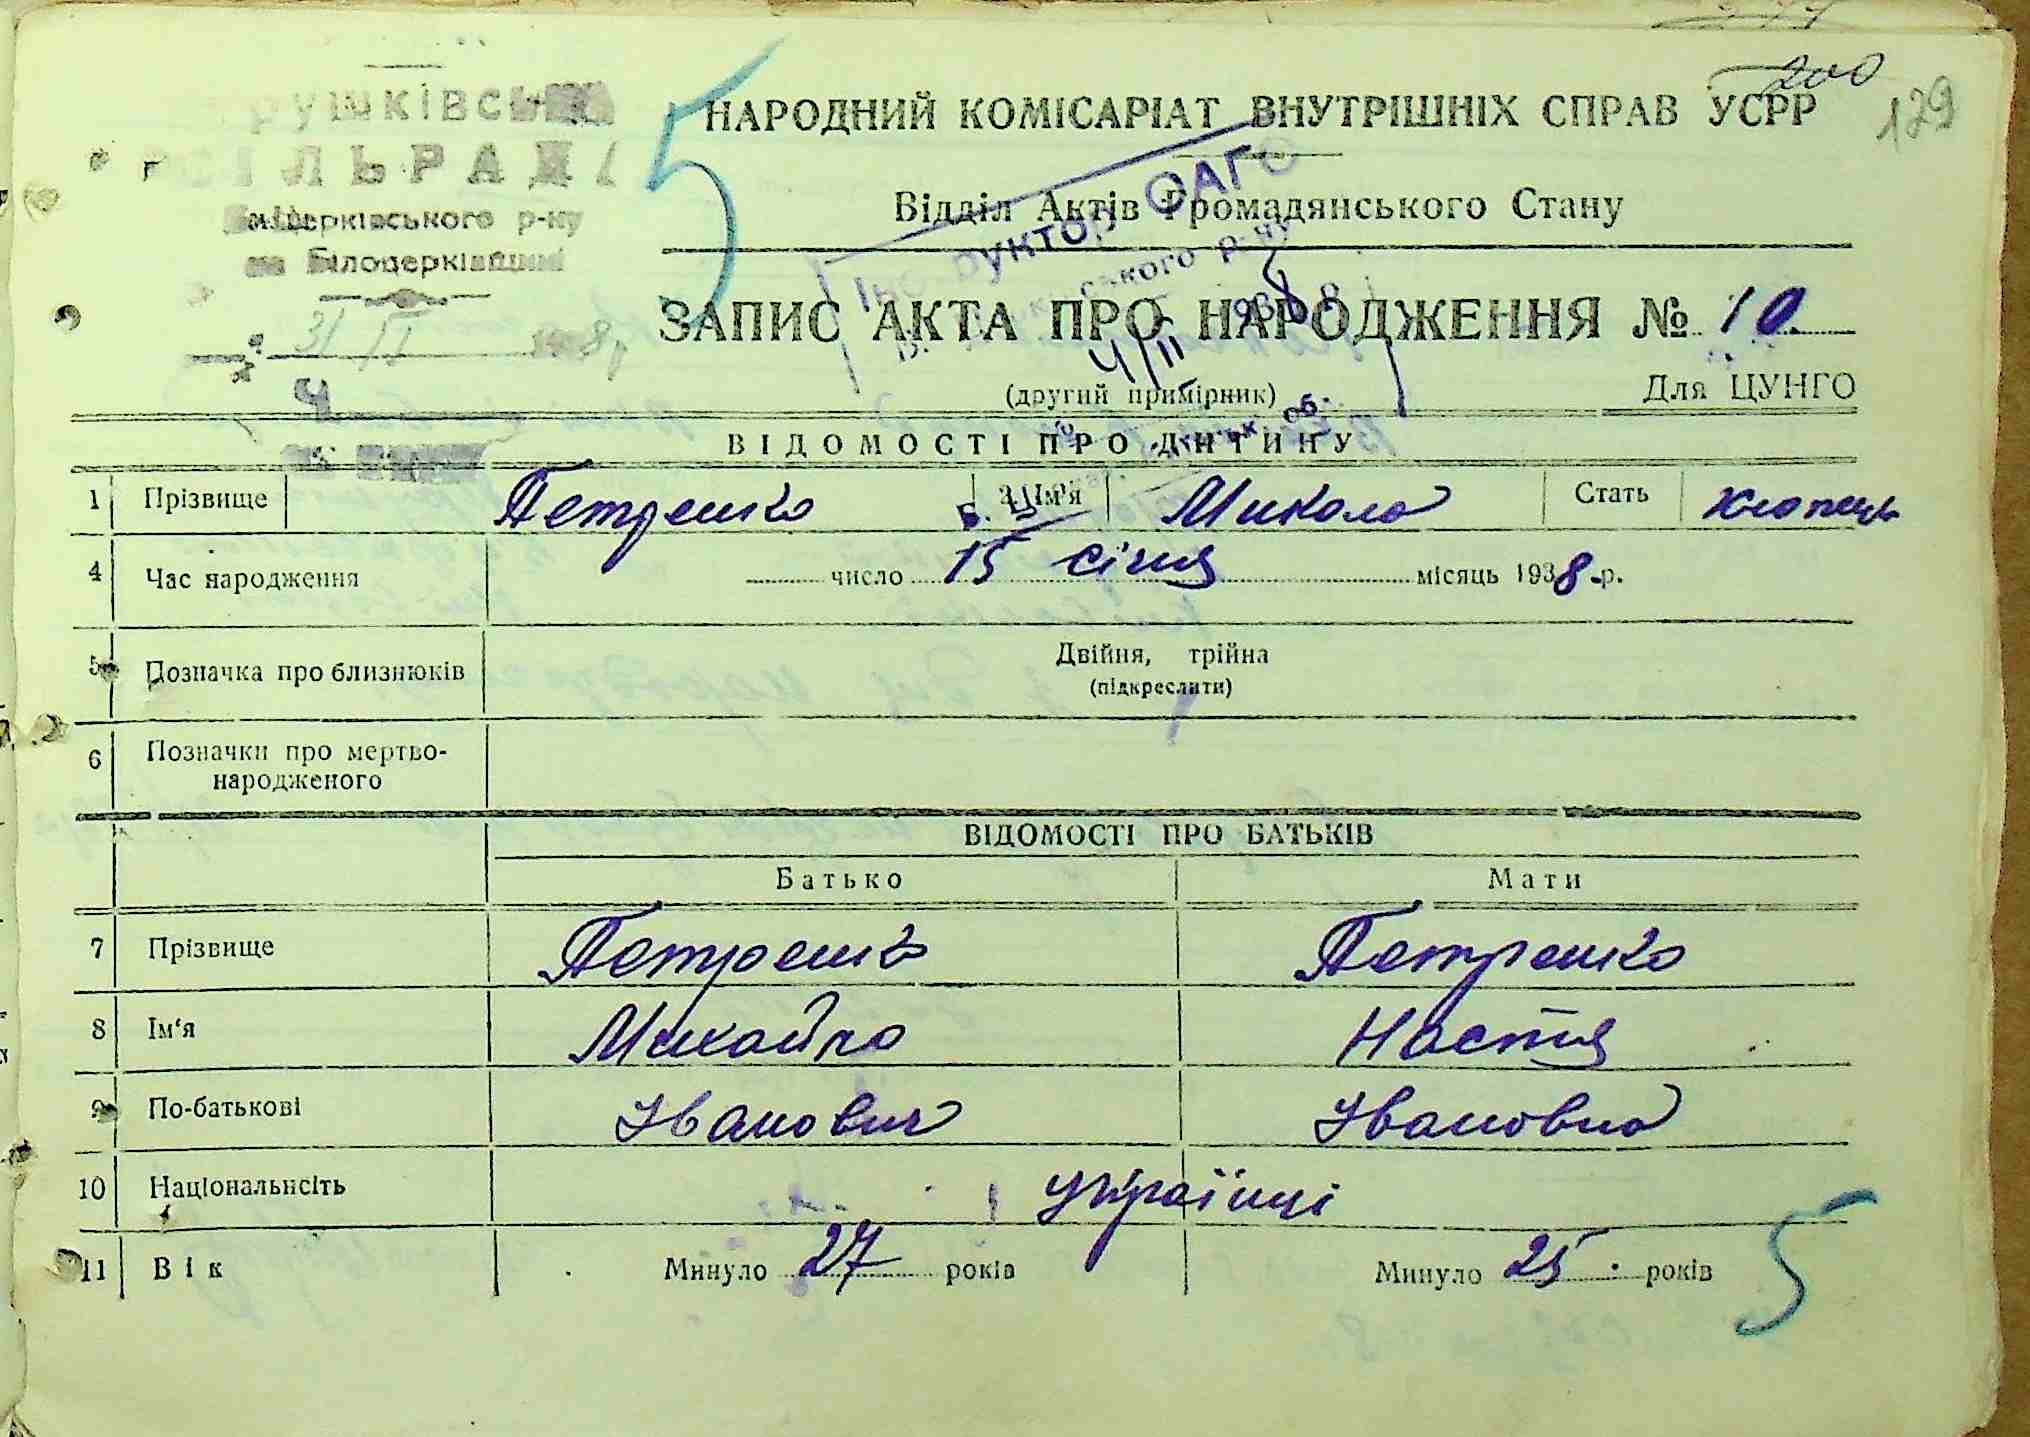 200
129
НАРОДНИЙ КОМІСАРІАТ ВНУТРІШНІХ СПРАВ УСРР
СІЛЬРАДА
р-ну
5
Відділ Актів Громадянського Стану
ЗАПИС АКТА ПРО НАРОДЖЕННЯ № 10
4/II
(другий примірник)
Для ЦУНГО
ВІДОМОСТІ ПРО ДИТИНУ
1 Прізвище Петренко 3 Ім'я Микола Стать хлопець
4 Час народження число 15 січня місяць 1938 р.
5 Позначка про близнюків Двійня, трійна
(підкреслити)
6 Позначки про мертво-
народженого
ВІДОМОСТІ ПРО БАТЬКІВ
Батько Мати
7 Прізвище Петренко Петренко
8 Ім'я Михайло Настя
9 По-батькові Іванович Івановна
10 Національнсіть українці
11 Вік Минуло 27 років Минуло 25 років
5